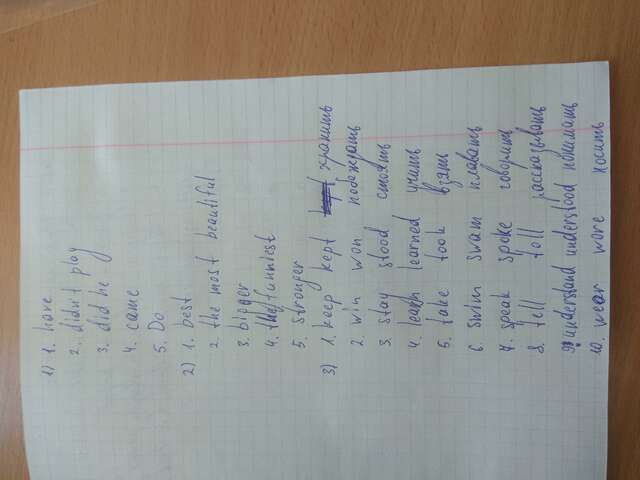 1) 1. have
2. didn't play
3. did he
4. came
5. Do
2) 1. best
2. the most beautiful
3. bigger
4. the funniest
5. stronger
3) 1. keep kept хранить
2. win won побеждать
3. stay stood стоять
4. leagn learned учить
5. take took взять
6. swim swam плавать
7. speak spoke говорить
8. tell toll рассказывать
9. understand understood понимать
10. wear wore носить